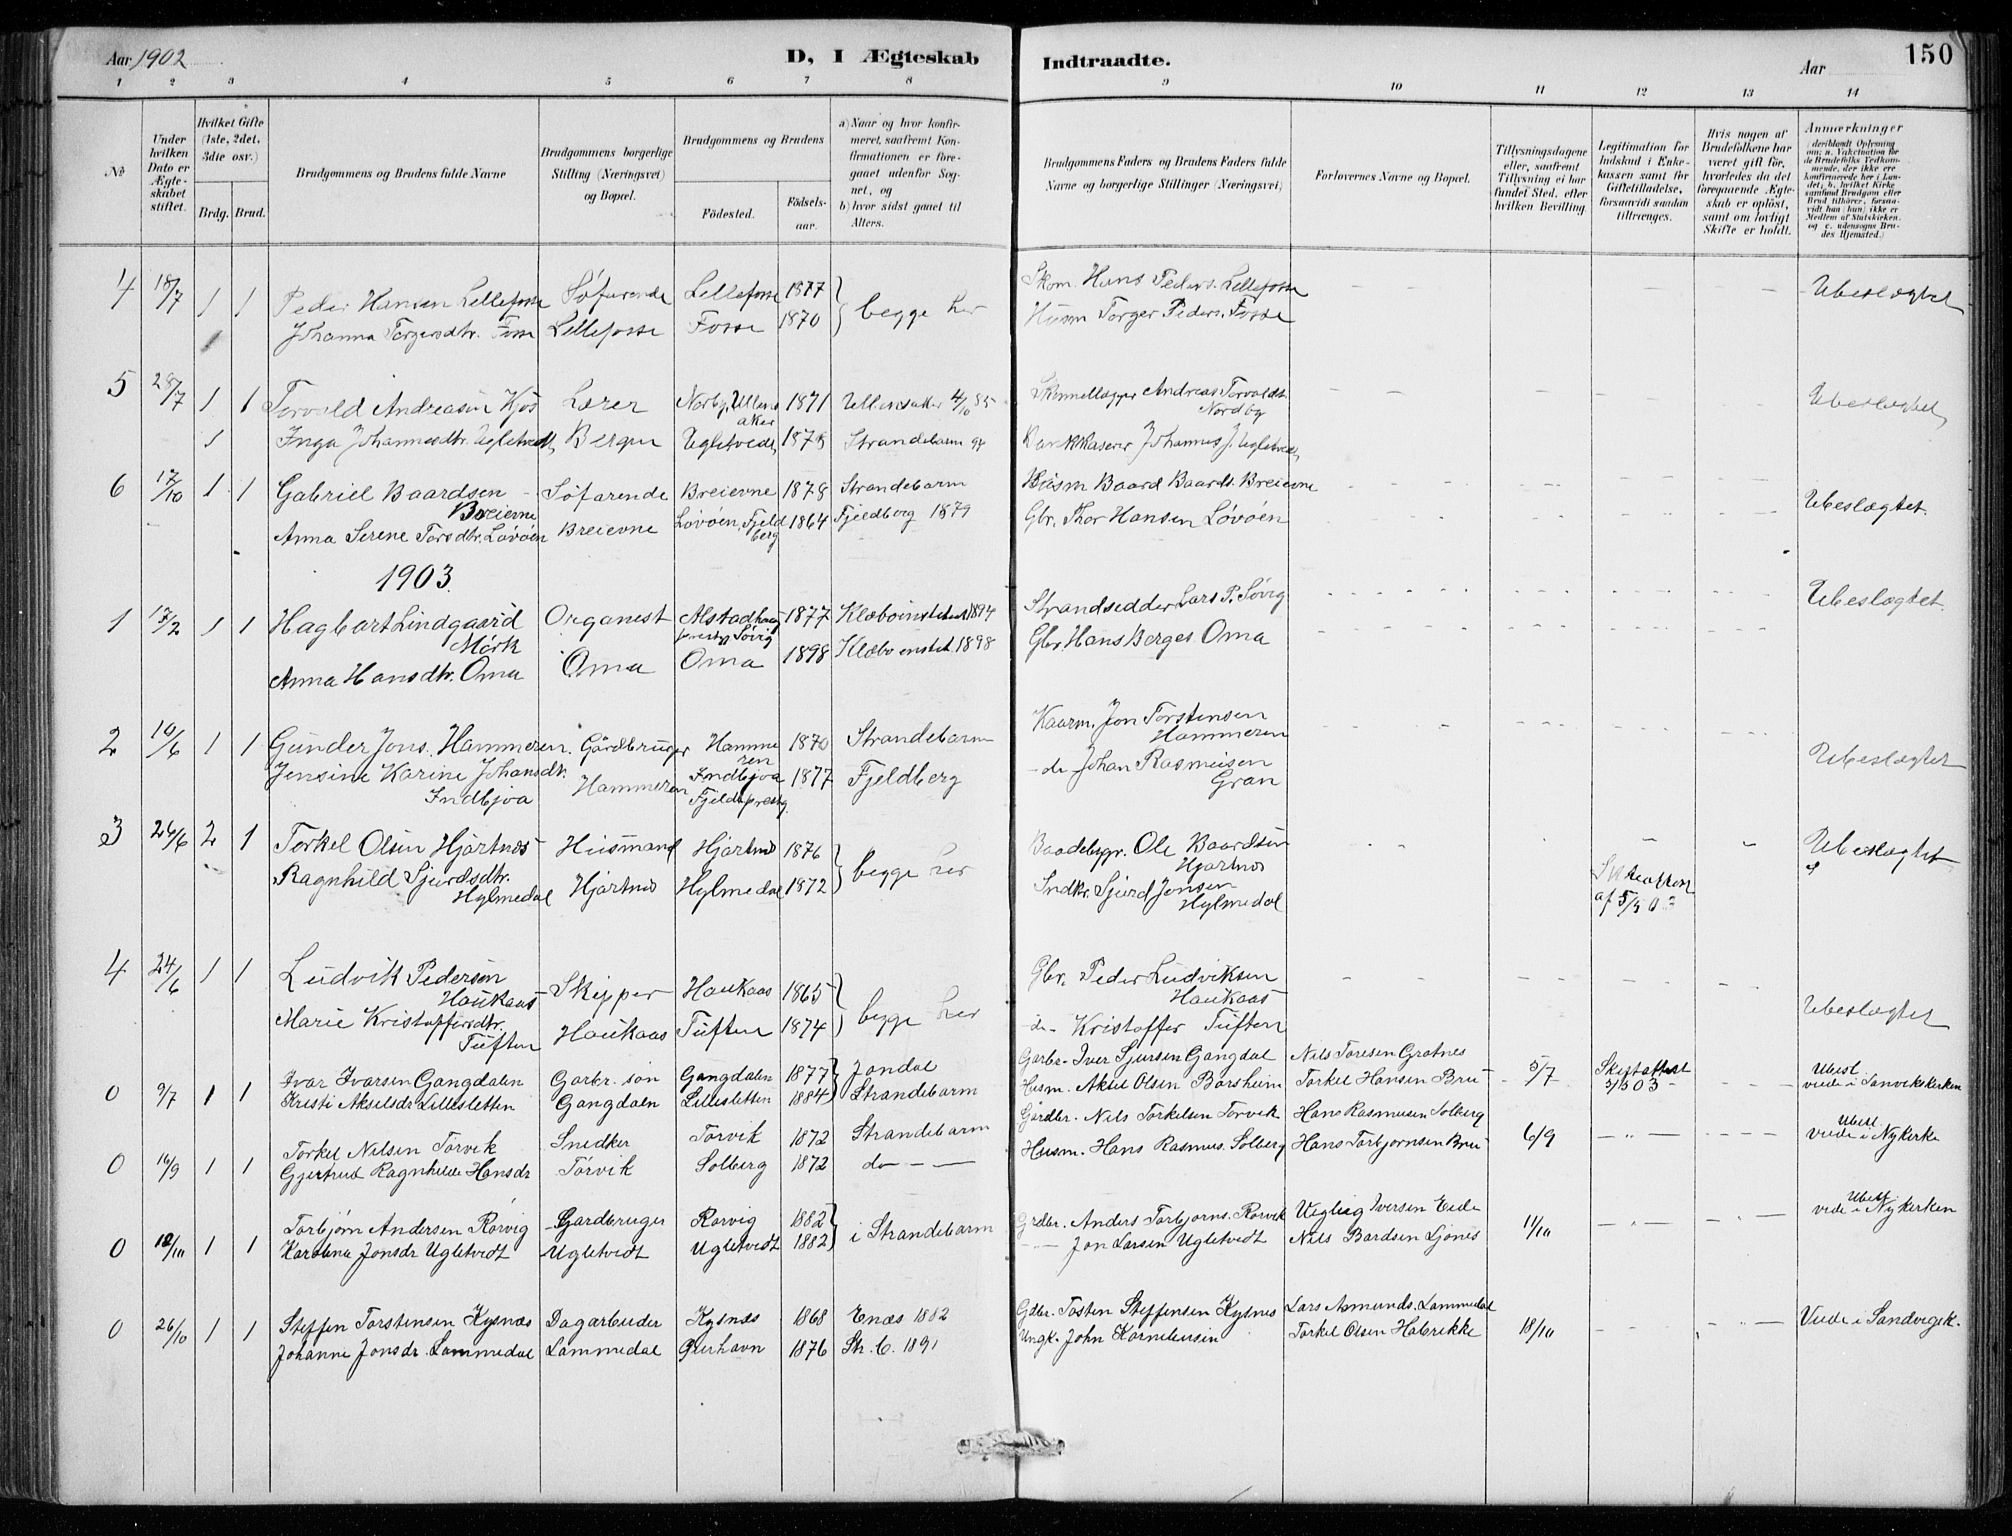 Aar 1902
D, I Ægteskab
Indtraadte.
Aar
150
1 2 3 4 5 6 7 8 9 10 11 12 13 14
No
Under hvilken Dato er Ægteskabet stiftet.
Hvilket Gifte (1ste, 2det, 3die osv.)
Brdg. Brud.
Brudgommens og Brudens fulde Navne
Brudgommens borgerlige Stilling (Næringsvei) og Bopæl.
Brudgommens og Brudens
Fødested.
Fødsels-aar.
a) Naar og hvor konfirmeret, saafremt Konfirmationen er foregaaet udenfor Sognet, og
b) hvor sidst gaaet til Alters.
Brudgommens Faders og Brudens Faders fulde Navne og borgerlige Stillinger (Næringsvei)
Forlovernes Navne og Bopæl.
Tillysningsdagene eller, saafremt Tillysning ei har fundet Sted, efter hvilken Bevilling
Legitimation for Indskud i Enkekassen samt for Giftetilladelse, forsaavidt saadan tiltrænges.
Hvis nogen af Brudefolkene har været gift før, hvorledes da det foregaaende Ægteskab er opløst, samt om lovligt Skifte er holdt.
Anmærkninger
4 18/7 1 1 Peder Hansen Lillefosse Søfarende Lillefosse 1877 begge her Skom. Hans Peders. Lillefosse Ubeslægtet
Johanna Torgersdtr. Fosse Lillefosse Fosse 1870 Husm Torger Peders. Fosse
5 28/7 1 1 Torvald Andreasen Kjos Lærer Norby, Ullensaker 1871 Ullensaker 4/10 85 Andreas Torvaldt. Nordby Ubeslægtet
1 Inga Johannesdtr. Ugletvedt Bergen Ugletvedt 1875 Strandebarm 94 Johannes J. Ugletvedt
6 17/10 1 1 Gabriel Baardsen Breievne Søfarende Breievne 1878 Strandebarm Husm Baard Baards. Breievne Ubeslægtet.
Anna Serene Torsdtr. Løvøen Breievne Løvøen, Fjeldberg 1864 Fjeldberg 1879 Gbr. Thor Hansen Løvøen
1903.
1 17/2 1 1 Hagbart Lindgaard Mørk Organist Alstadhaug prestg Søvig 1877 Klæbo 1894 Strandsedder Lars P. Søvig Ubeslægtet.
Anna Hansdtr. Oma Oma Oma 1898 Klæbo 1898 Gbr. Hans Berges. Oma
2 10/6 1 1 Gunder Jons. Hammeren. Gårdbruger Hammeren 1870 Strandebarm Kaarm. Jon Torstensen Hammeren Ubeslægtet
Jensine Karine Johansdtr. Indbjoa Hammeren Indbjoa Fjeldbprestg. 1877 Fjeldberg -do- Johan Rasmussen Gran
3 26/6 2 1 Torkel Olsen Hjartnes Husmand Hjartnes 1876 begge her Baadebygr. Ole Baardsen Hjartnes Ubeslægtet
Ragnhild Sjurdsdtr. Hylmedal Hjartnes Hylmedal 1872 Sndkr. Sjurd Jonsen Hylmedal Skteatten af 5/5 03
4 24/6 1 1 Ludvik Pedersen Haukaas Skipper Haukaas 1865 begge her Gbr. Peder Ludviksen Haukaas Ubeslægtet
Marie Kristoffersdtr. Tuften Haukaas Tuften 1874 -do- Kristoffer Tuften
0 9/7 1 1 Ivar Ivarsen Gangdalen Garbr. søn Gangdalen 1877 Jondal Garbr. Iver Sjursen Gangdal Nils Toresen Grotnes 5/7 Skiftattest 5/5 03 Ubesl
Kristi Akselsdr. Lillesletten Gangdalen Lillesletten 1884 Strandebarm Husm. Aksel Olsen Børsheim Torkel Hansen Bru viede i Sanvikskirken
0 16/9 1 1 Torkel Nilsen Torvik Snedker Torvik 1872 Strandebarm Gårdbr. Nils Torkelsen Torvik Hans Rasmusen Solberg 6/9 — " — Ubesl
Gjertrud Ragnhilde Hansdr Torvik Solberg 1872 do — Husm. Hans Rasmus. Solberg Hans Torbjornsen Bru viede i Nykirke
0 18/10 1 1 Torbjørn Andersen Rørvig Gardbruger Rørvig 1882 i Strandebarm Grdbr. Anders Torbjorns. Rørvik Iversen Eide 11/10 — " — Ubesl
Karolina Jonsdr Ugletvedt Ugletvidt Ugletvidt 1882 — " — Jon Larsen Ugletvedt Nils Bardsen Ljones viede i Nykirken
0 26/10 1 1 Steffen Torstensen Kysnæs Dagarbeider Kysnæs 1868 Enæs 1882 Gdbr. Tosten Steffensen Kysnes Lars Asmunds. Lammedal 18/10 Viede i Sandvigsk.
Johanne Jonsdr. Lammedal Lammedal 1876 Str. b. 1891 Ungk. John Korneliusen Torkel Olsen Habrekke